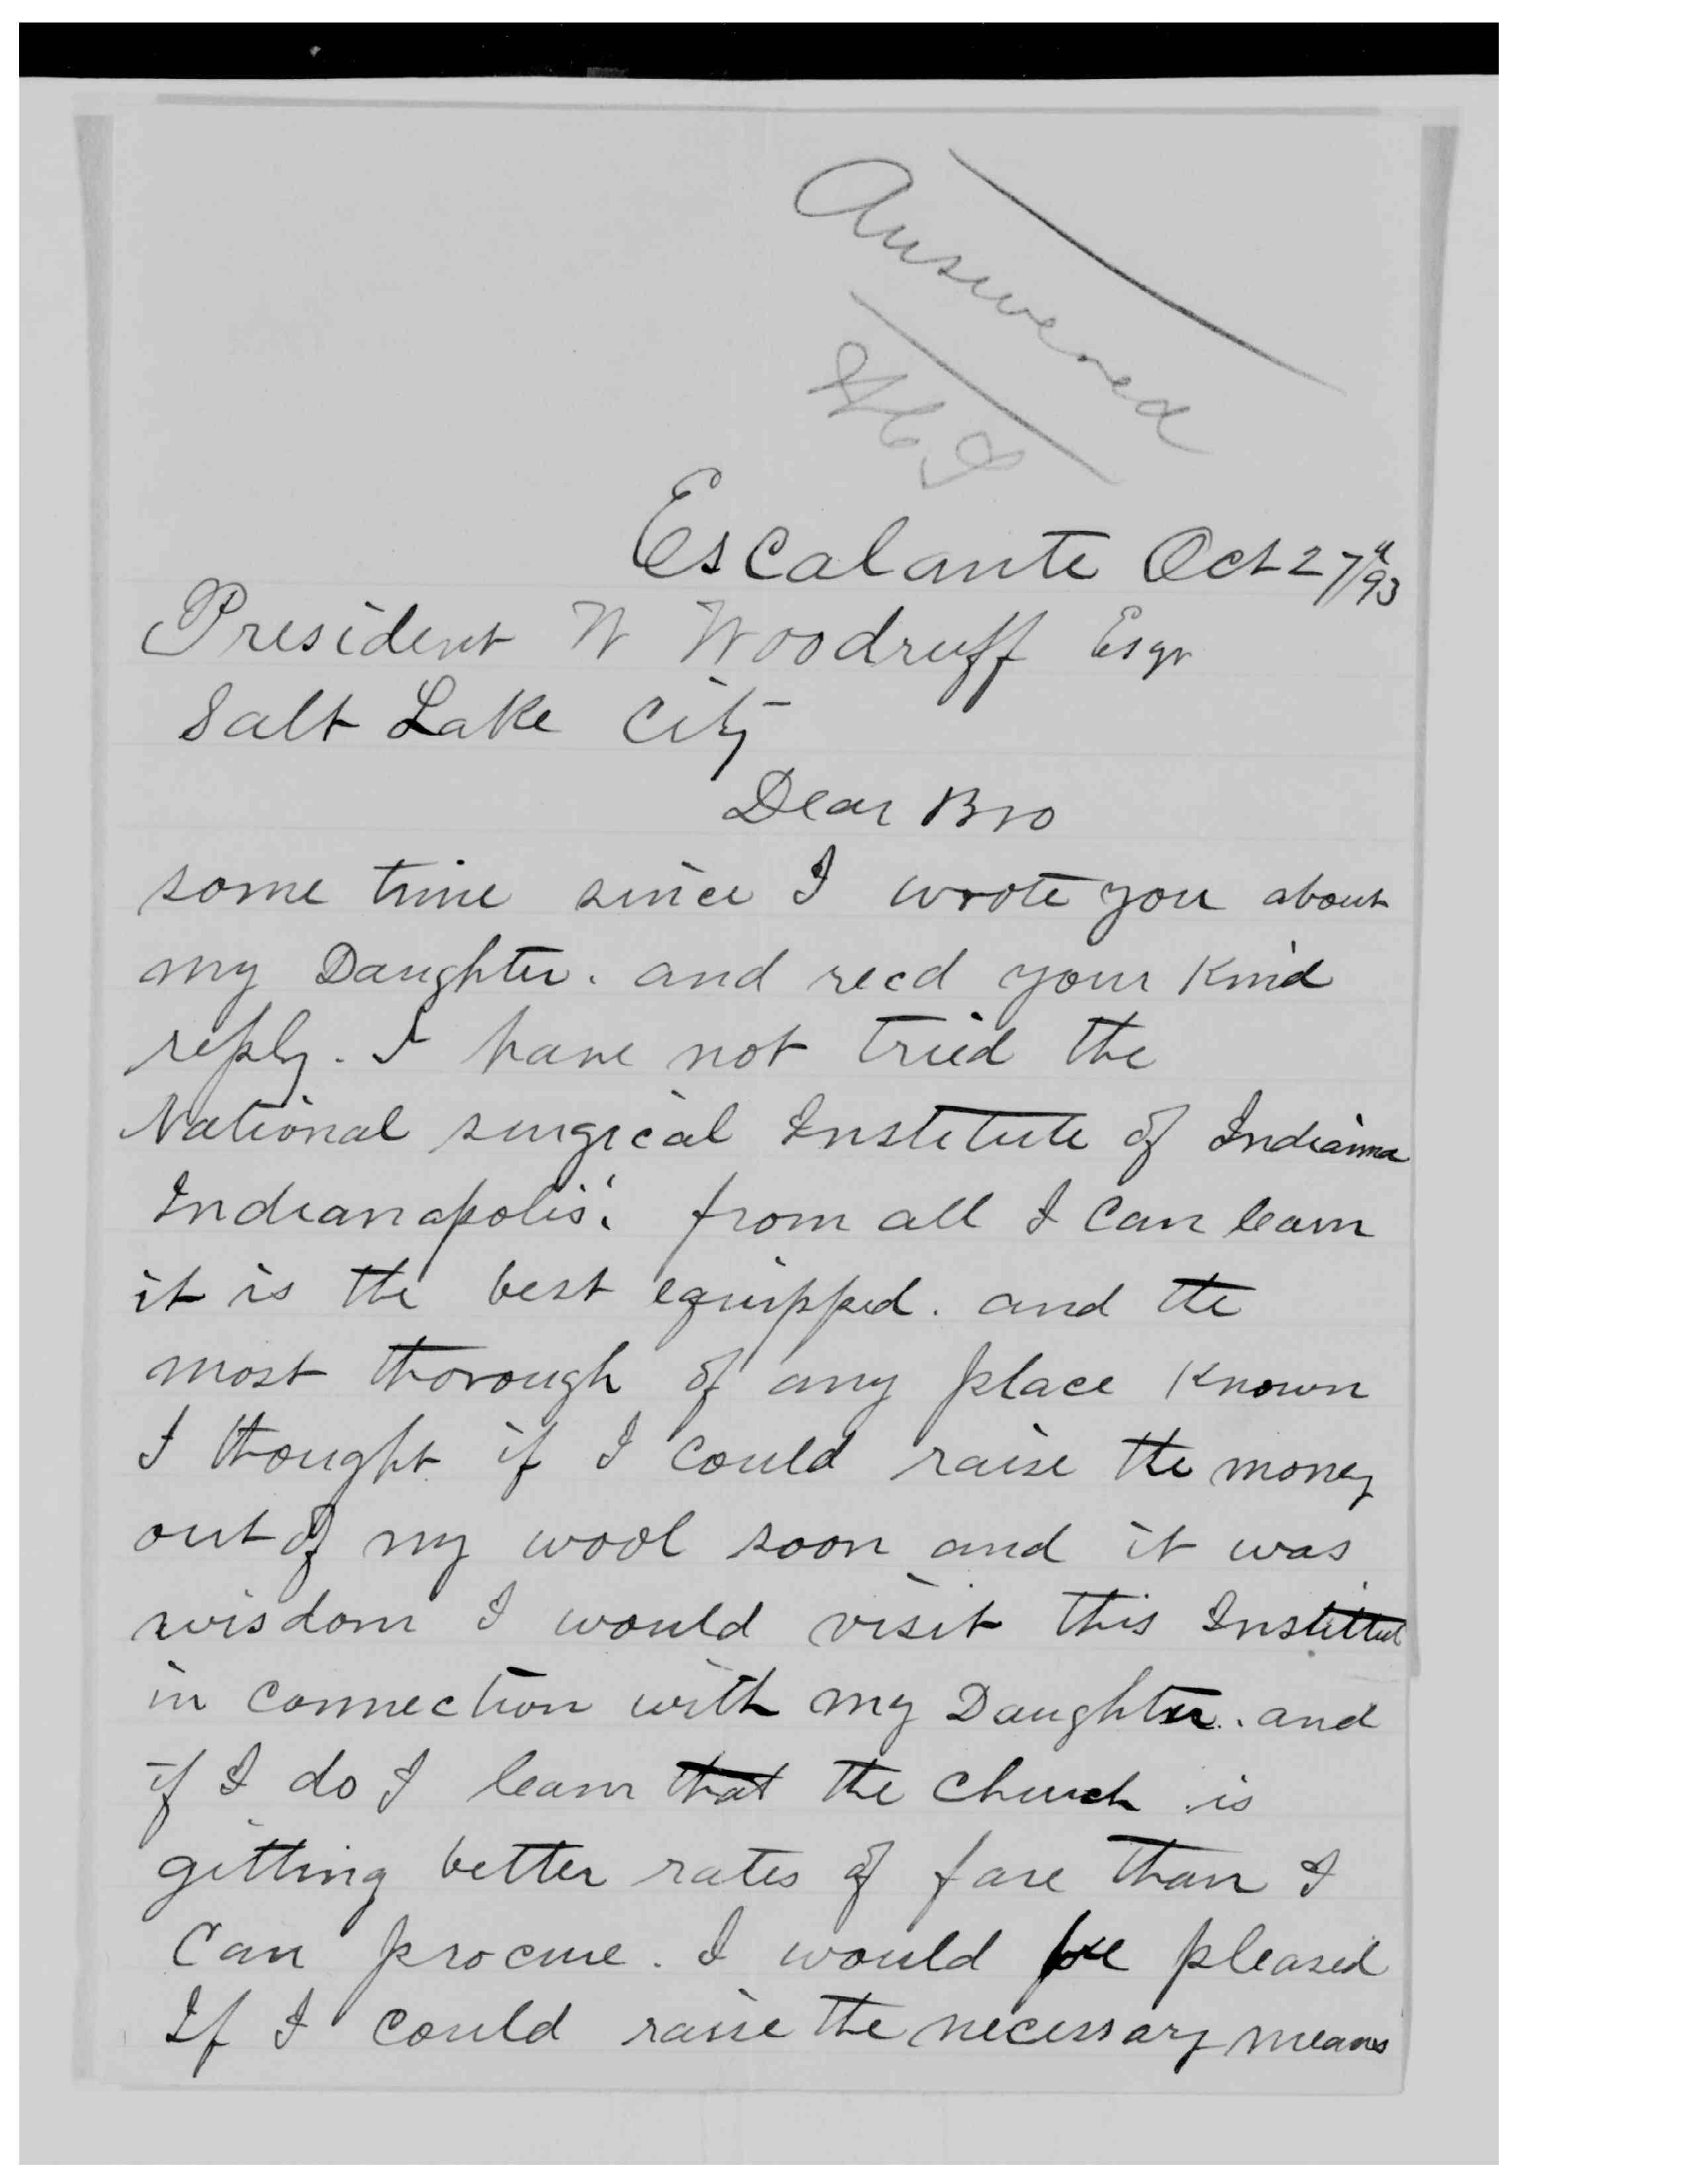 Answered
Escalante Oct 27th/93
President W Woodruff Esqr
Salt Lake City
Dear Bro
some time since I wrote you about
my Daughter. and recd your kind
reply. I have not tried the
National surgical Institute of Indianna
Indianapolis. from all I can learn
it is the best equipped. and the
most thorough of any place known
I thought if I could raise the money
out of my wool soon and it was
wisdom I would visit this Institut
in connection with my Daughter. and
if I do I learn that the church is
gitting better rates of fare than I
can procure. I would be pleased
If I could raise the necessary means